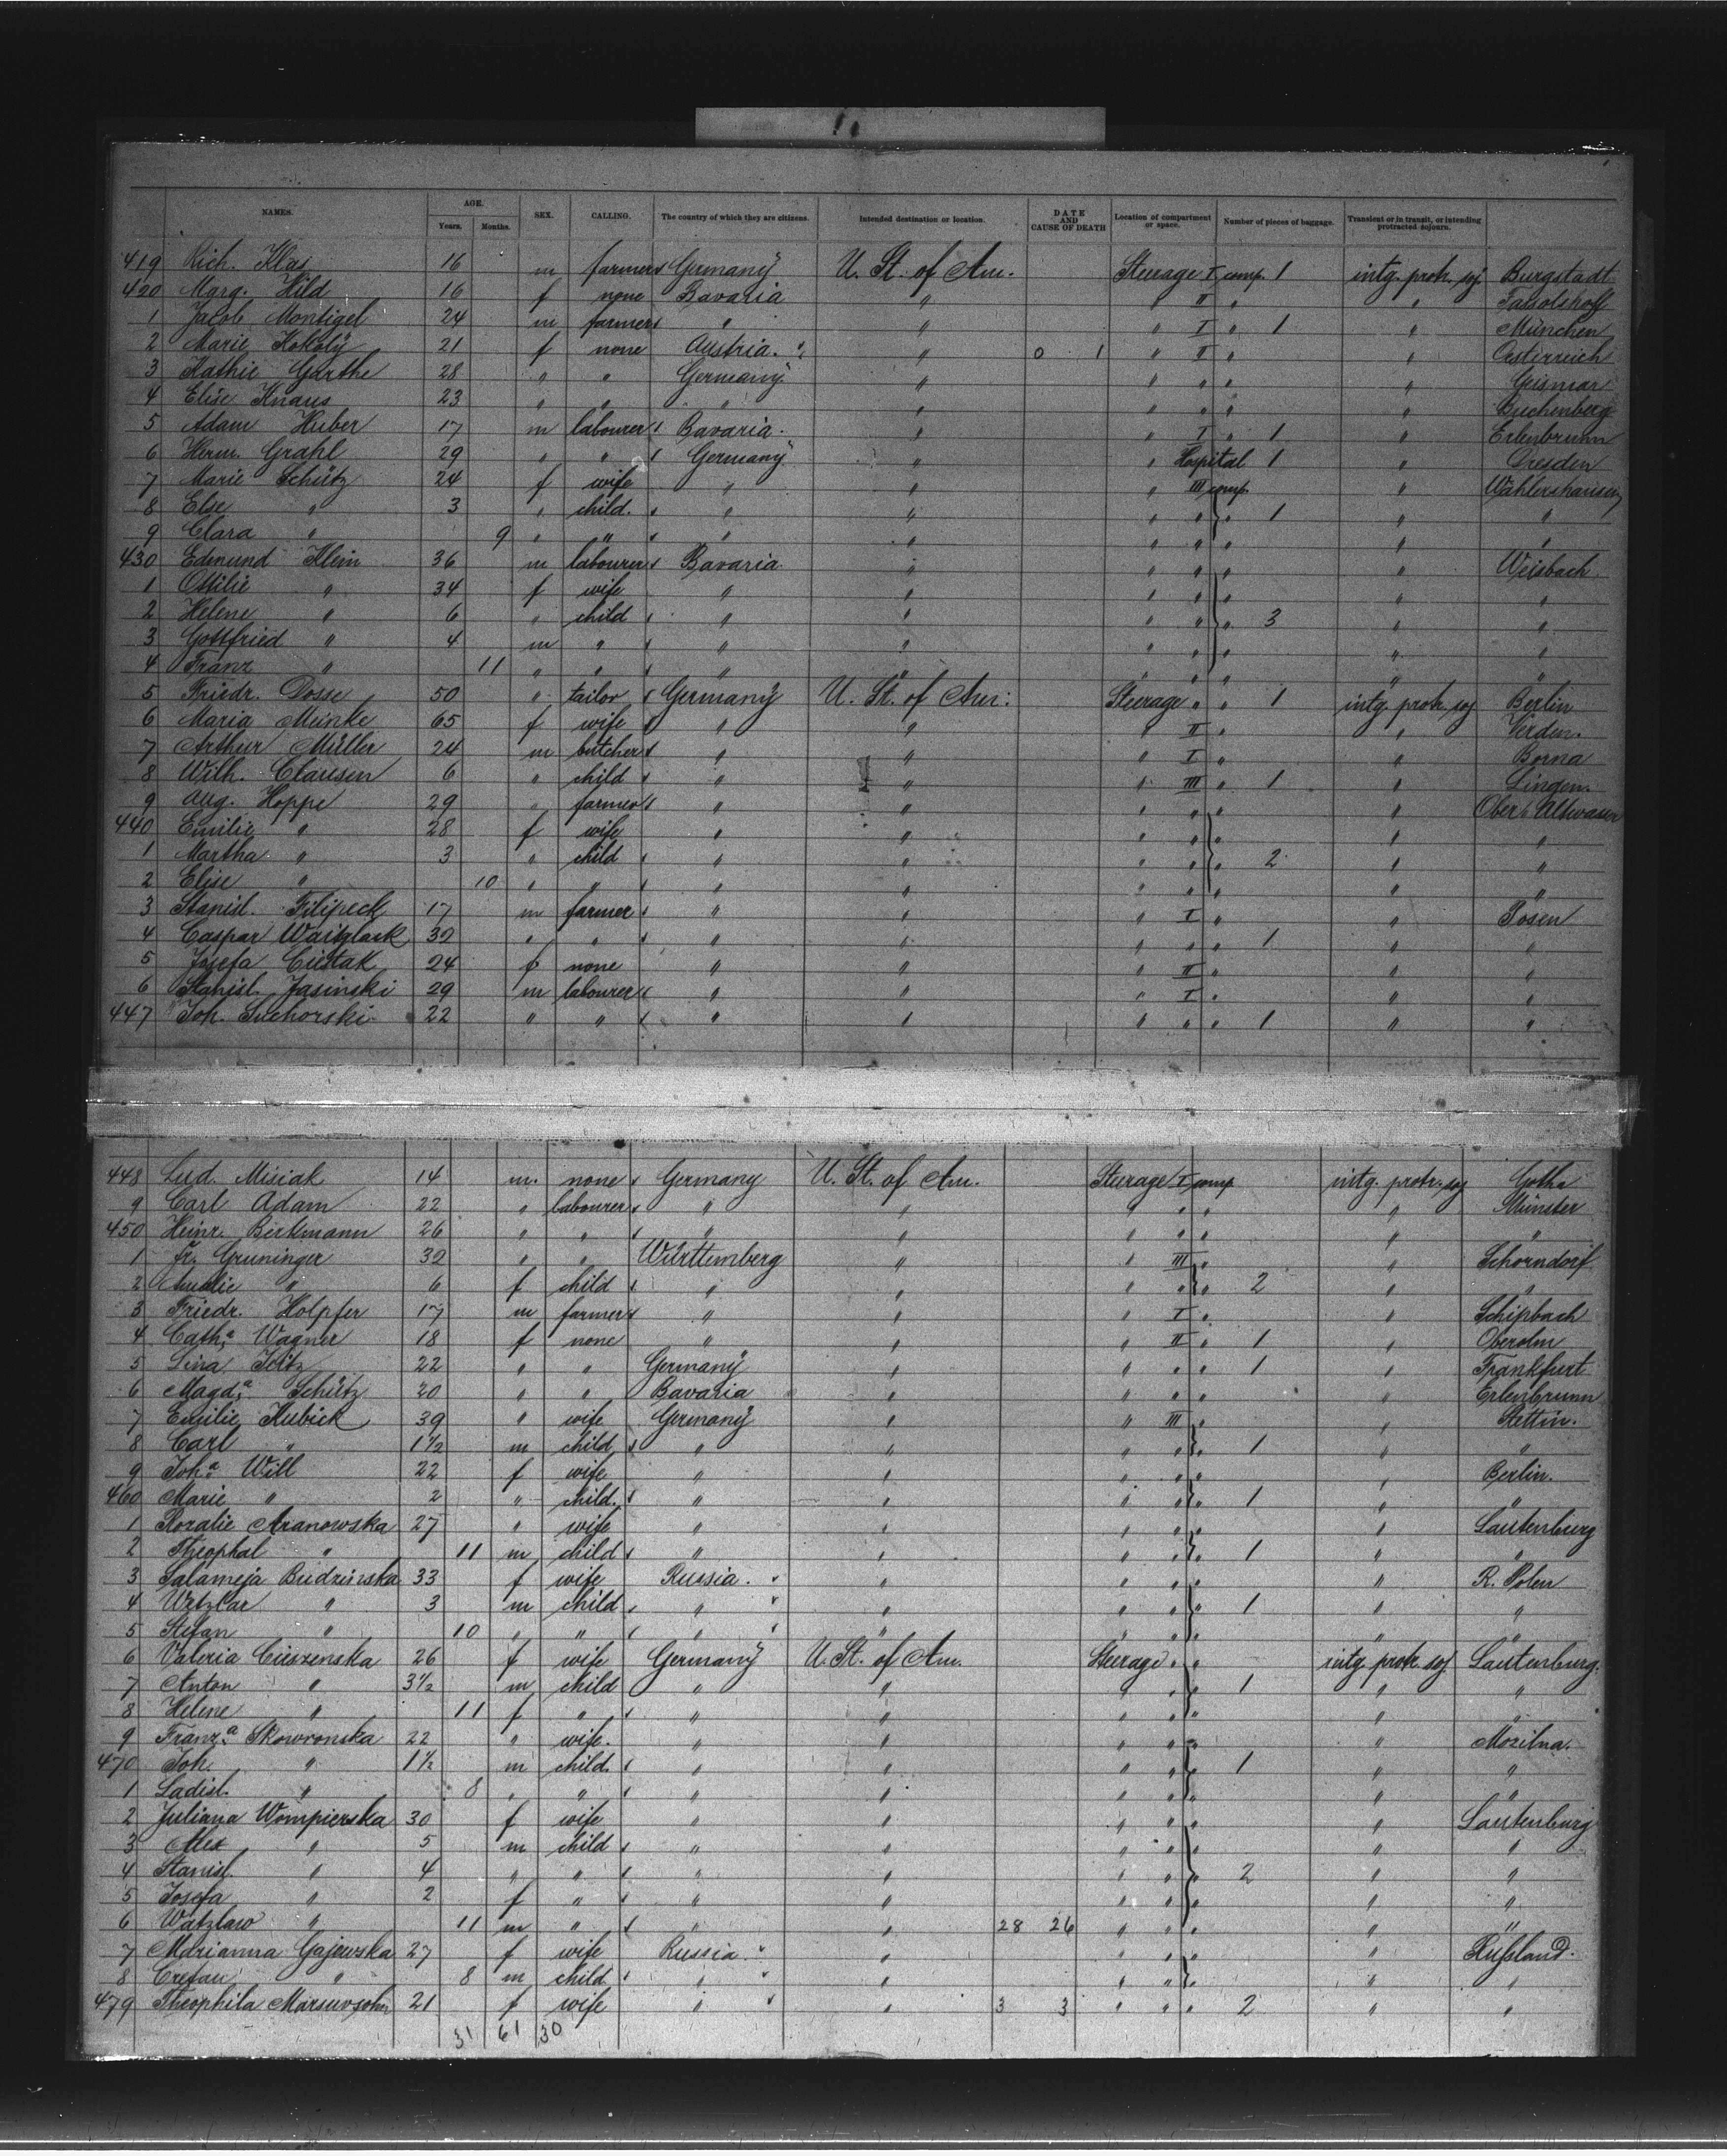 NAMES. AGE. Years. Months. SEX. CALLING. The country of which they are citizens. Intended destination or location. DATE AND CAUSE OF DEATH Location of compartment or space. Number of pieces of baggage. Transient or in transit, or intending protracted sojourn.
419 Rich. Klas 16 m farmer Germany U. St. of Am. Steerage I comp. 1 intg. protr. soj. Burgstadt
420 Marg. Hild 16 f none Bavaria " " II " "
1 Jacob Montigel 24 m farmer " " " I " 1 " München
2 Marie Kokoly 21 f none Austria. " 0 1 " II " " Oesterreich
3 Kathie Garthe 28 " " Germany " " " " " Geismar
4 Elise Knaus 23 " " " " " " " " Buchenberg
5 Adam Huber 17 m labourer Bavaria. " " I " 1 " Erlenbrunn
6 Herm. Grahl 29 " " Germany " " Hospital 1 " Dresden
7 Marie Schütz 24 f wife " " " III comp. " Wahlershausen
8 Else " 3 " child. " " " " " 1 " "
9 Clara " 9 " " " " " " " " "
430 Edmund Klein 36 m labourer Bavaria " " " " " Weisbach
1 Ottilie " 34 f wife " " " " " " "
2 Helene " 6 " child " " " " " 3 " "
3 Gottfried " 4 m " " " " " " " "
4 Franz " 11 " " " " " " " " "
5 Friedr. Dosse 50 " tailor Germany U. St. of Am: Steerage " " 1 intg. protr. soj Berlin
6 Maria Meinke 65 f wife " " " II " " Verden.
7 Arthur Müller 24 m butcher " " " I " " Borna
8 Wilh. Clausen 6 " child " " " III " 1 " Lingen.
9 Aug. Hoppe 29 " farmer " " " " " " Ober Altwasser
440 Emilie " 28 f wife " " " " " " "
1 Martha " 3 " child " " " " " 2 " "
2 Elise " 10 " " " " " " " " "
3 Stanisl. Filipeck 17 m farmer " " " I " " Posen
4 Caspar 32 " " " " " " " 1 " "
5 Josefa Ciestak 24 f none " " " II " " "
6 Stanisl. Jasinski 29 m labourer " " " I " " "
447 Joh. Suchorski 22 " " " " " " " 1 " "
448 Lud. Misiak 14 m. none Germany U. St. of Am. Steerage I comp intg. protr. soj Gotha
9 Carl Adam 22 " labourer " " " " " " Münster
450 Heinr. Birkmann 26 " " " " " " " " "
1 Fr. Gruninger 32 " " Württemberg " " III " " Schorndorf
2 Amalie " 6 f child " " " " " 2 " "
3 Friedr. Holpfer 17 m farmer " " " I " " Schipbach
4 Cath.a Wagner 18 f none " " " II " 1 " Oberolm
5 Lina 22 " " Germany " " " " 1 " Frankfurt
6 Magd.a Schütz 20 " " Bavaria " " " " " Erlenbrunn
7 Emilie Kubick 39 " wife Germany " " III " " Stettin.
8 Carl " 1½ m child " " " " " 1 " "
9 Joh.a Will 22 f wife " " " " " " Berlin.
460 Marie " 2 " child. " " " " " 1 " "
1 Rozalie Aranowska 27 " wife " " " " " " Lautenburg
2 Theophal " 11 m child " " " " " 1 " "
3 Salameja Budzinska 33 f wife Russia. " " " " " R. Polen
4 Watzlar " 3 m child " " " " " 1 " "
5 Stefan " 10 " " " " " " " " "
6 Valeria Cieszenska 26 f wife Germany U. St. of Am. Steerage " " intg. protr. soj. Lautenburg.
7 Anton " 3½ m child " " " " " 1 " "
8 Helene " 11 f " " " " " " " "
9 Franz.a Skowronska 22 " wife. " " " " " " Mozilna.
470 Joh. " 1½ m child. " " " " " 1 " "
1 Ladisl. " 8 " " " " " " " " "
2 Juliana Wompierska 30 f wife " " " " " " Lautenburg
3 Alex " 5 m child " " " " " " "
4 Stanisl. " 4 " " " " " " " 2 " "
5 Josefa " 2 f " " " " " " " "
6 Watzlaw " 11 m " " " 28 26 " " " " "
7 Marianna Gajewska 27 f wife Russia. " " " " " Rußland.
8 " 8 m child " " " " " " "
479 Theophila 21 f wife " " 3 3 " " " 2 " "
31 61 30